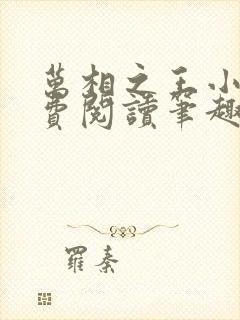 萬相之王小
費閱讀筆趣
羅秦